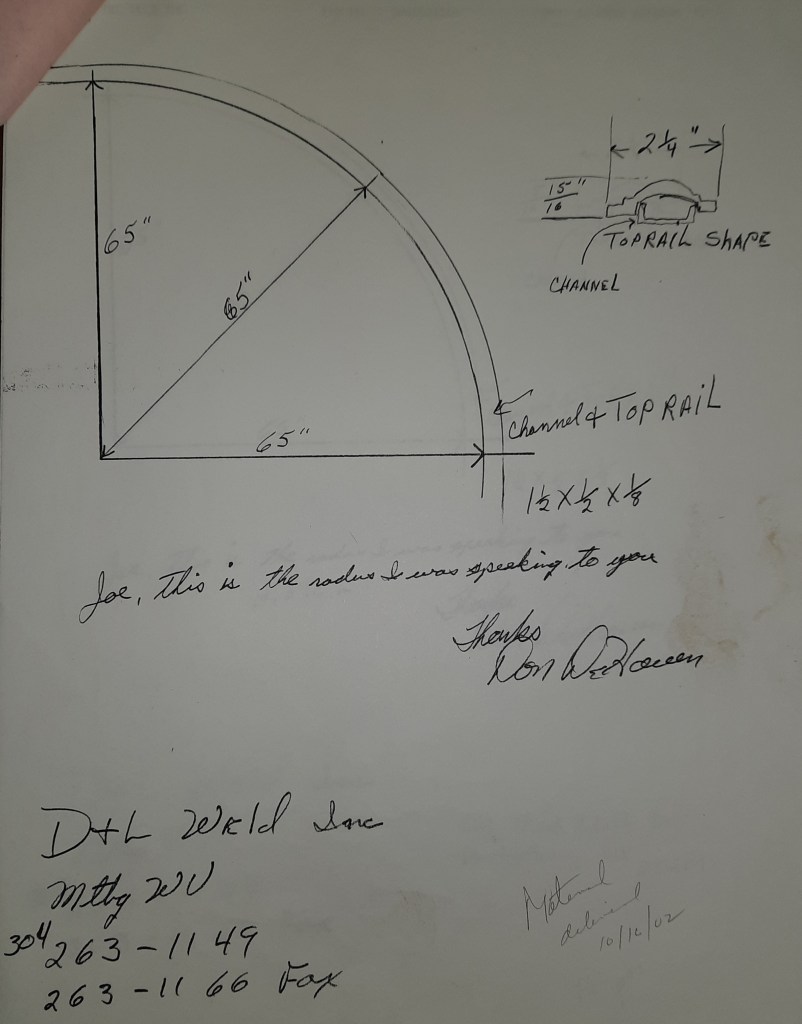 65"
65"
65"
2 1/4"
15/16"
TOPRAIL SHAPE
CHANNEL
Channel & TOP RAIL
1 1/2 X 1/2 X 1/8
Joe, this is the radus I was speaking to you
Thanks
Don
D+L Weld Inc
Mtbg WV
304 263-1149
263-1166 Fax
Material
delivered
10/16/02